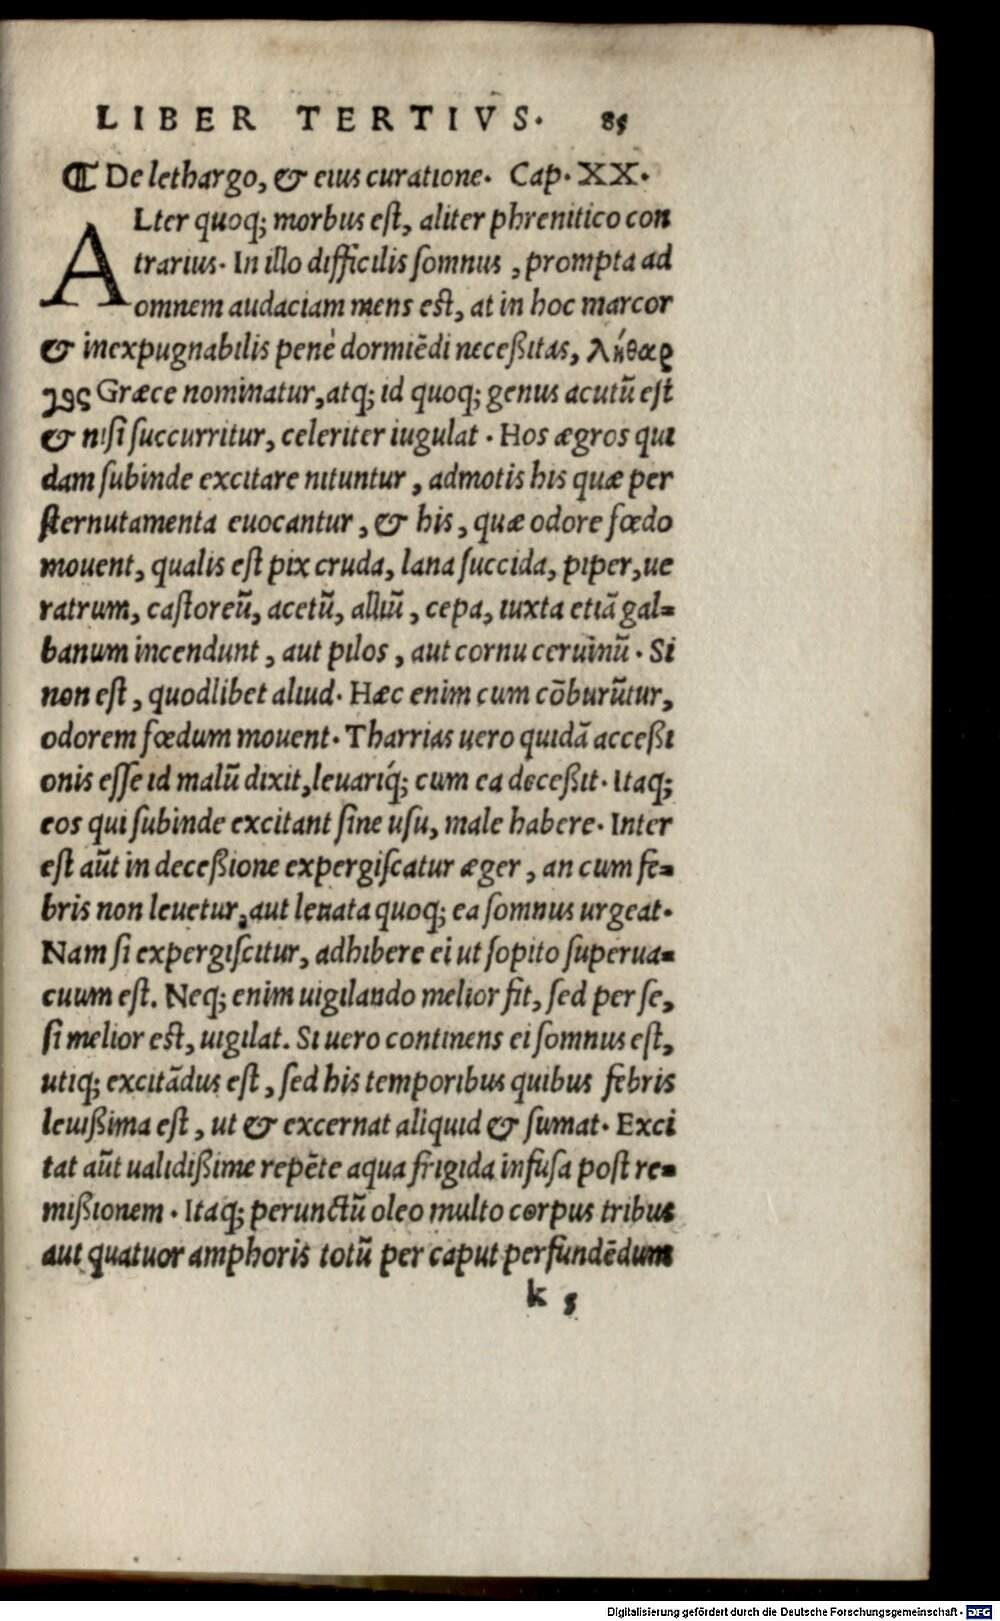 LIBER TERTIVS. 85
¶ De lethargo, & eius curatione. Cap. XX.
ALter quoq; morbus est, aliter phrenitico con
trarius. In illo difficilis somnus, prompta ad
omnem audaciam mens est, at in hoc marcor
& inexpugnabilis penè dormiēdi necessitas, λήθαρ
γος Græce nominatur, atq; id quoq; genus acutū est
& nisi succurritur, celeriter iugulat. Hos ægros qui
dam subinde excitare nituntur, admotis his quæ per
sternutamenta euocantur, & his, quæ odore fœdo
mouent, qualis est pix cruda, lana succida, piper, ue
ratrum, castoreū, acetū, alliū, cepa, iuxta etiā gal=
banum incendunt, aut pilos, aut cornu ceruinū. Si
non est, quodlibet aliud. Hæc enim cum cōburūtur,
odorem fœdum mouent. Tharrias uero quidā accessi
onis esse id malū dixit, leuariq́; cum ea decessit. Itaq;
eos qui subinde excitant sine usu, male habere. Inter
est aūt in decessione expergiscatur æger, an cum fe=
bris non leuetur, aut leuata quoq; ea somnus urgeat.
Nam si expergiscitur, adhibere ei ut sopito superua=
cuum est. Neq; enim uigilando melior fit, sed per se,
si melior est, uigilat. Si uero continens ei somnus est,
utiq; excitādus est, sed his temporibus quibus febris
leuissima est, ut & excernat aliquid & sumat. Exci
tat aūt ualidissime repēte aqua frigida infusa post re=
missionem. Itaq; perunctū oleo multo corpus tribus
aut quatuor amphoris totū per caput perfundēdum
k 5
Digitalisierung gefördert durch die Deutsche Forschungsgemeinschaft - DFG